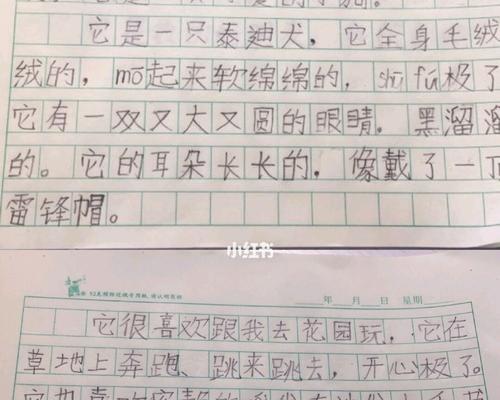 它是一只泰迪犬，它全身毛绒
绒的，mō起来软绵绵的，shū fú极了
它有一双又大又圆的眼睛。黑溜溜
的。它的耳朵长长的，像戴了一顶
雷锋帽。
小红书
年 月 日 星期
它很喜欢跟我去花园玩，它在
草地上奔跑、跳来跳去，开心极了。